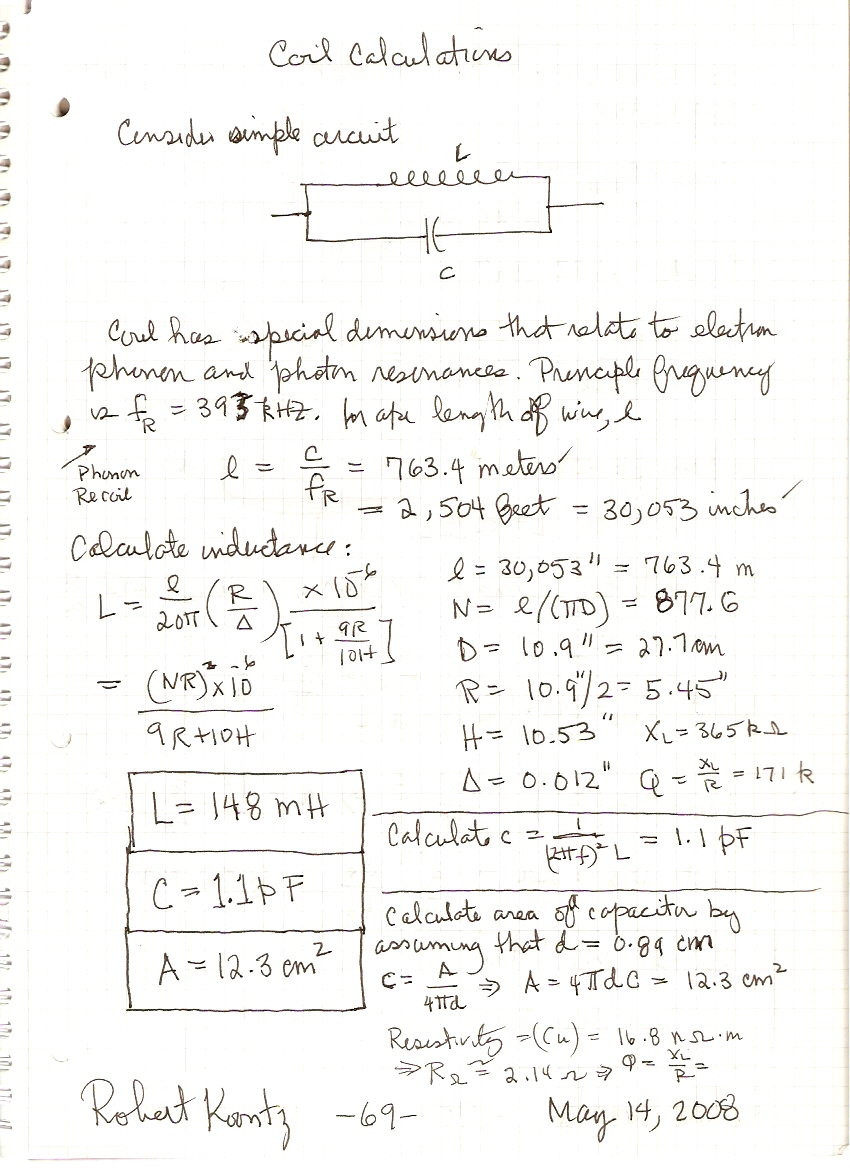 Coil Calculations
Consider simple circuit
L
C
Coil has special dimensions that relate to electron
phonon and photon resonances. Principle frequency
is f_R = 393 kHz. length of wire, l
Phonon
Recoil
l = c/f_R = 763.4 meters ✓
= 2,504 feet = 30,053 inches ✓
Calculate inductance:
L = l/20π (R/Δ) × 10^-6 / [1 + 9R/10H]
= (NR)^2 × 10^-6 / 9R+10H
l = 30,053" = 763.4 m
N = l/(πD) = 877.6
D = 10.9" = 27.7 cm
R = 10.9"/2 = 5.45"
H = 10.53" X_L = 365 kΩ
Δ = 0.012" Q = X_L/R = 171 k
L = 148 mH
C = 1.1 pF
A = 12.3 cm^2
Calculate c = 1/(2πf)^2 L = 1.1 pF
Calculate area of capacitor by
assuming that d = 0.89 cm
C = A/4πd ⇒ A = 4πdC = 12.3 cm^2
Resistivity = (Cu) = 16.8 nΩ·m
⇒ R_Ω ≈ 2.14 Ω ⇒ Q = X_L/R =
Robert Koontz -69- May 14, 2008